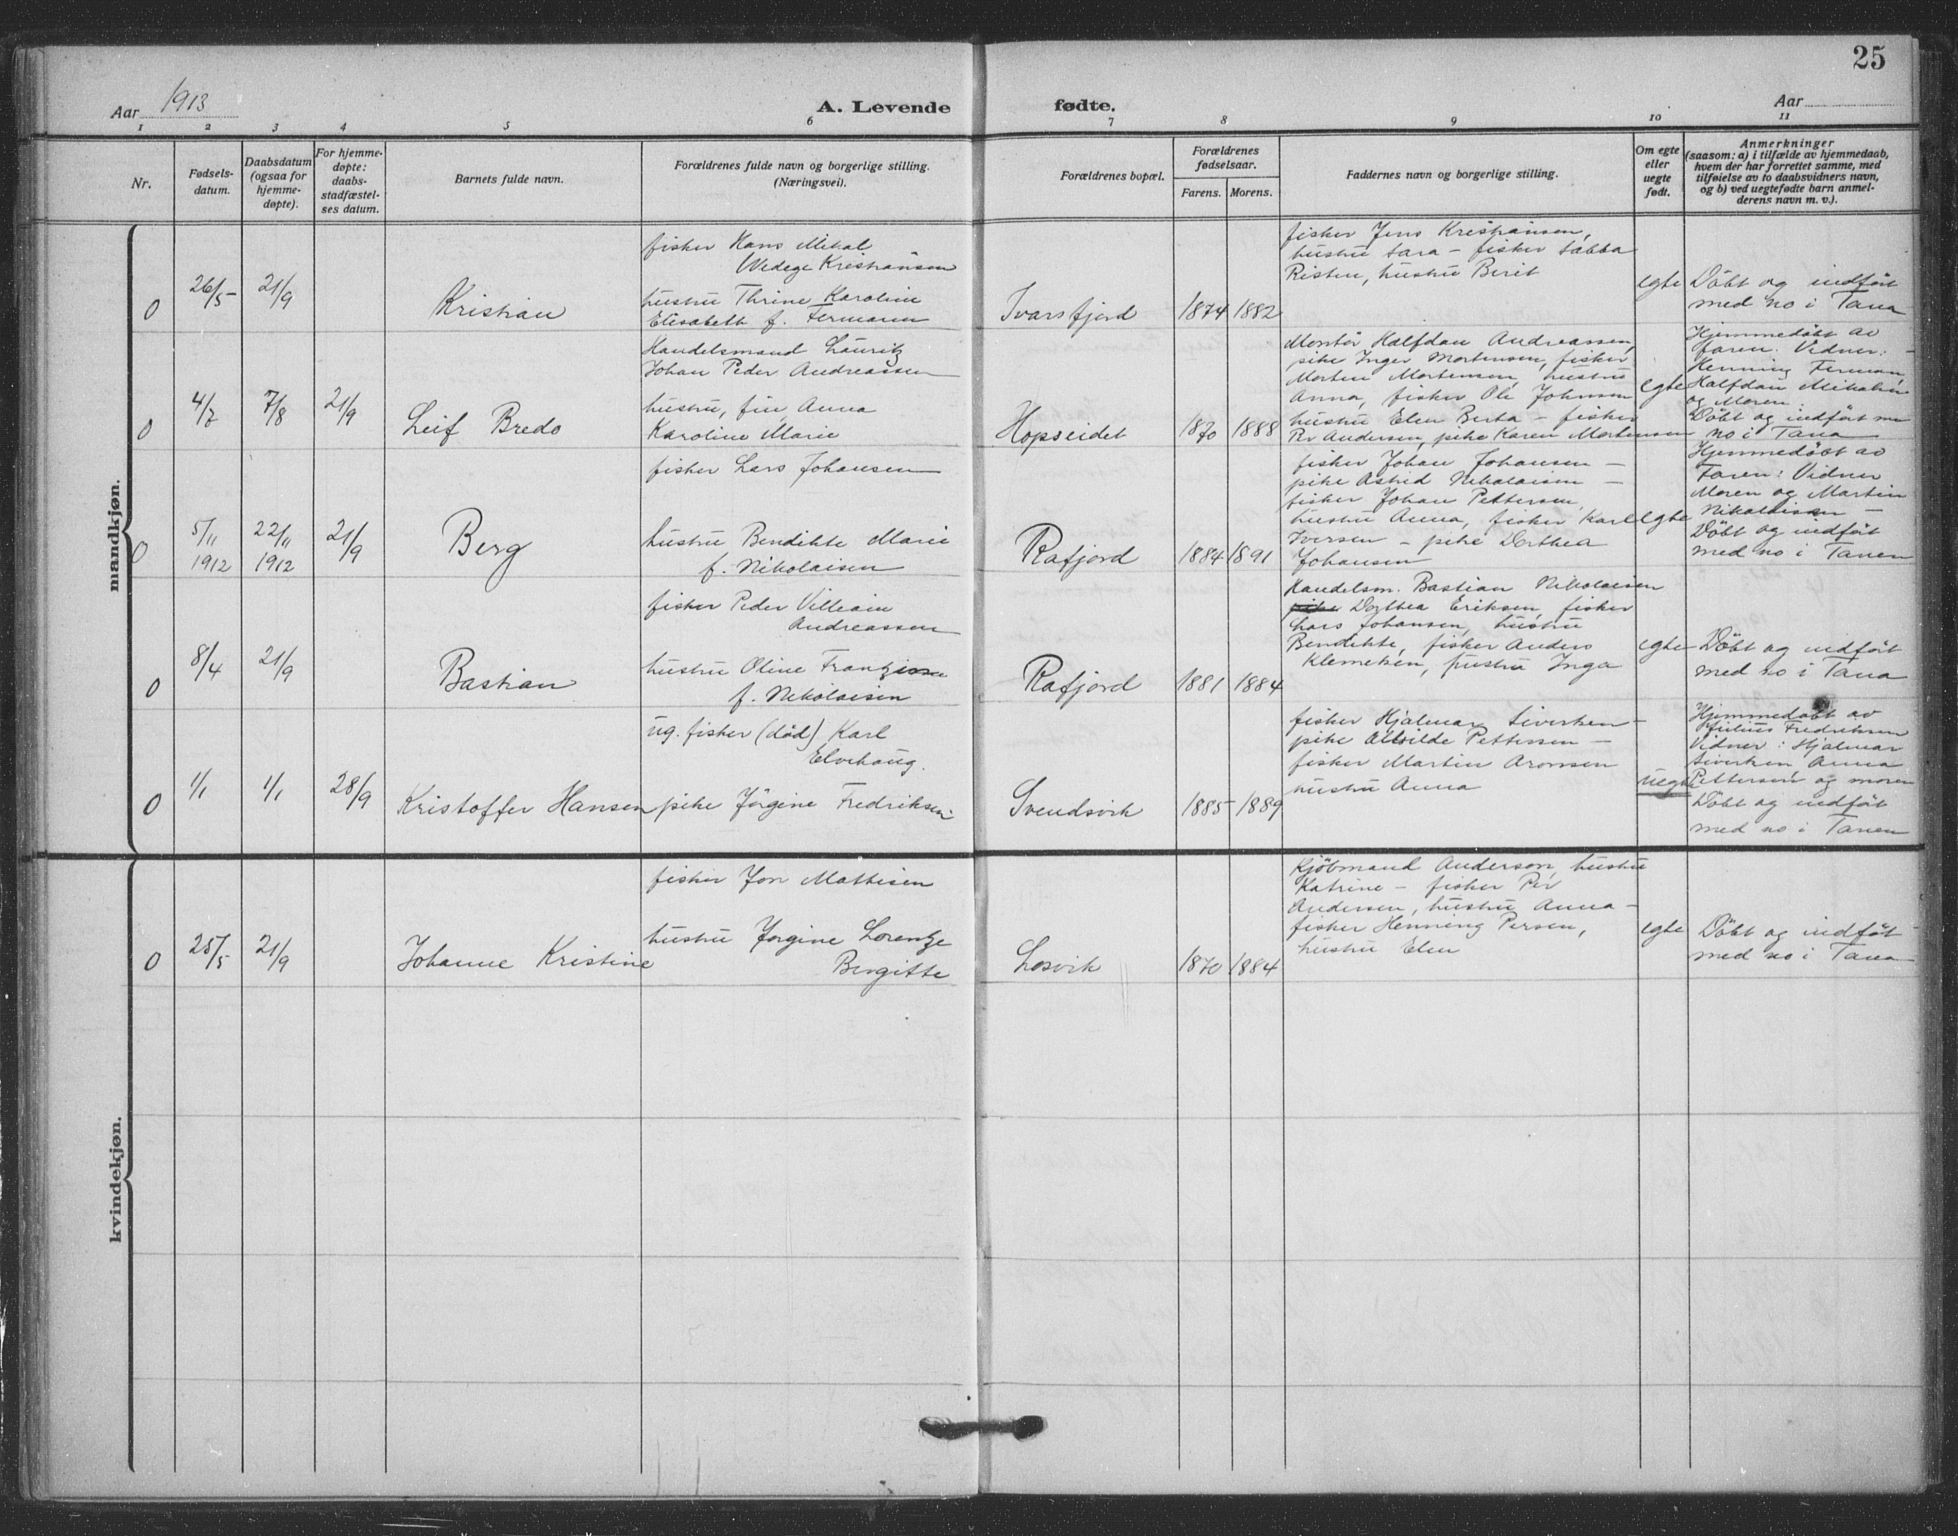 25
Aar 1913
A. Levende fødte.
Aar
1 2 3 4 5 6 7 8 9 10 11
Nr.
Fødsels-
datum.
Daabsdatum
(ogsaa for
hjemme-
døpte).
For hjemme-
døpte:
daabs-
stadfæstel-
ses datum.
Barnets fulde navn.
Forældrenes fulde navn og borgerlige stilling.
(Næringsvei).
Forældrenes bopæl.
Forældrenes
fødselsaar.
Farens. Morens.
Faddernes navn og borgerlige stilling.
Om egte
eller
uegte
født.
Anmerkninger
(saasom: a) i tilfælde av hjemmedaab,
hvem der har forrettet samme, med
tilføielse av to daabsvidners navn,
og b) ved uegtefødte barn anmel-
derens navn m. v.).
mandkjøn.
0
26/5
21/9
Kristian
fisker Hans Mikal
Wedege Kristiansen
hustru Thrine Karoline
Elisabeth f. Fermann
Ivarsfjord
1874 1882
fisker Jens Kristiansen,
hustru Sara - fisker Sabba
Risten, hustru Berit
egte
Döbt og indfört
med no i Tana
0
4/7
7/8
21/9
Leif Bredo
Handelsmand Lauritz
Johan Peder Andreassen
hustru, fin Anna
Karoline Marie
Hopseidet
1870 1888
Montör Halfdan Andreassen,
pike Inger Mortensen, fisker
Morten Mortensen, hustru
Anna, fisker Ole Johnsen
hustru Elen Berta - fisker
Per Andersen, pike Karen Mortensen
egte
Hjemmedöbt av
faren. Vidner:
Henning Ferman,
Halfdan Mikalsen
og Moren.
Döbt og indfört me
no i Tana
0
5/11
1912
22/11
1912
21/9
Berg
fisker Lars Johansen
hustru Bendikte Marie
f. Nikolaisen
Rafjord
1884 1891
fisker Johan Johansen -
pike Astrid Nikolaisen -
fisker Johan Pettersen,
hustru Anna, fisker Karl
Iversen - pike Dorthea
Johansen
egte
Hjemmedöbt av
Faren: Vidner
Moren og Martin
Nikolaisen -
Döbt og indfört
med no i Tanen
0
8/4
21/9
Bastian
fisker Peder Villeain
Andreassen
hustru Oline
f. Nikolaisen
Rafjord
1881 1884
Handelsm. Bastian Nikolaisen
pike Dorthea Eriksen, fisker
Lars Johansen, hustru
Bendikte, fisker Anders
Klemetsen, hustru Inga
egte
Döbt og indfört
med no i Tana
0
1/1
1/1
28/9
Kristoffer Hansen
ug. fisker (död) Karl
Elvehaug.
pike Jörgine Fredriksen
Svendsvik
1885 1889
fisker Hjalmar Sivertsen -
pike Pettersen -
fisker Martin Aronsen
hustru Anna
uegte
Hjemmedöbt av
Julius Fredriksen
Vidner: Hjalmar
Sivertsen Anna
Pettersen og moren
Döbt og indfört
med no i Tanen
kvindekjøn.
0
25/5
21/9
Johanne Kristine
fisker Jon Mattisen
hustru Jorgine Lorentze
Bergitte
Losvik
1870 1884
Kjöbmand Anderson, hustru
Katrine - fisker Per
Andersen, hustru Anna -
fisker Henning Persen,
hustru Elen
egte
Döbt og indföt
med no i Tana